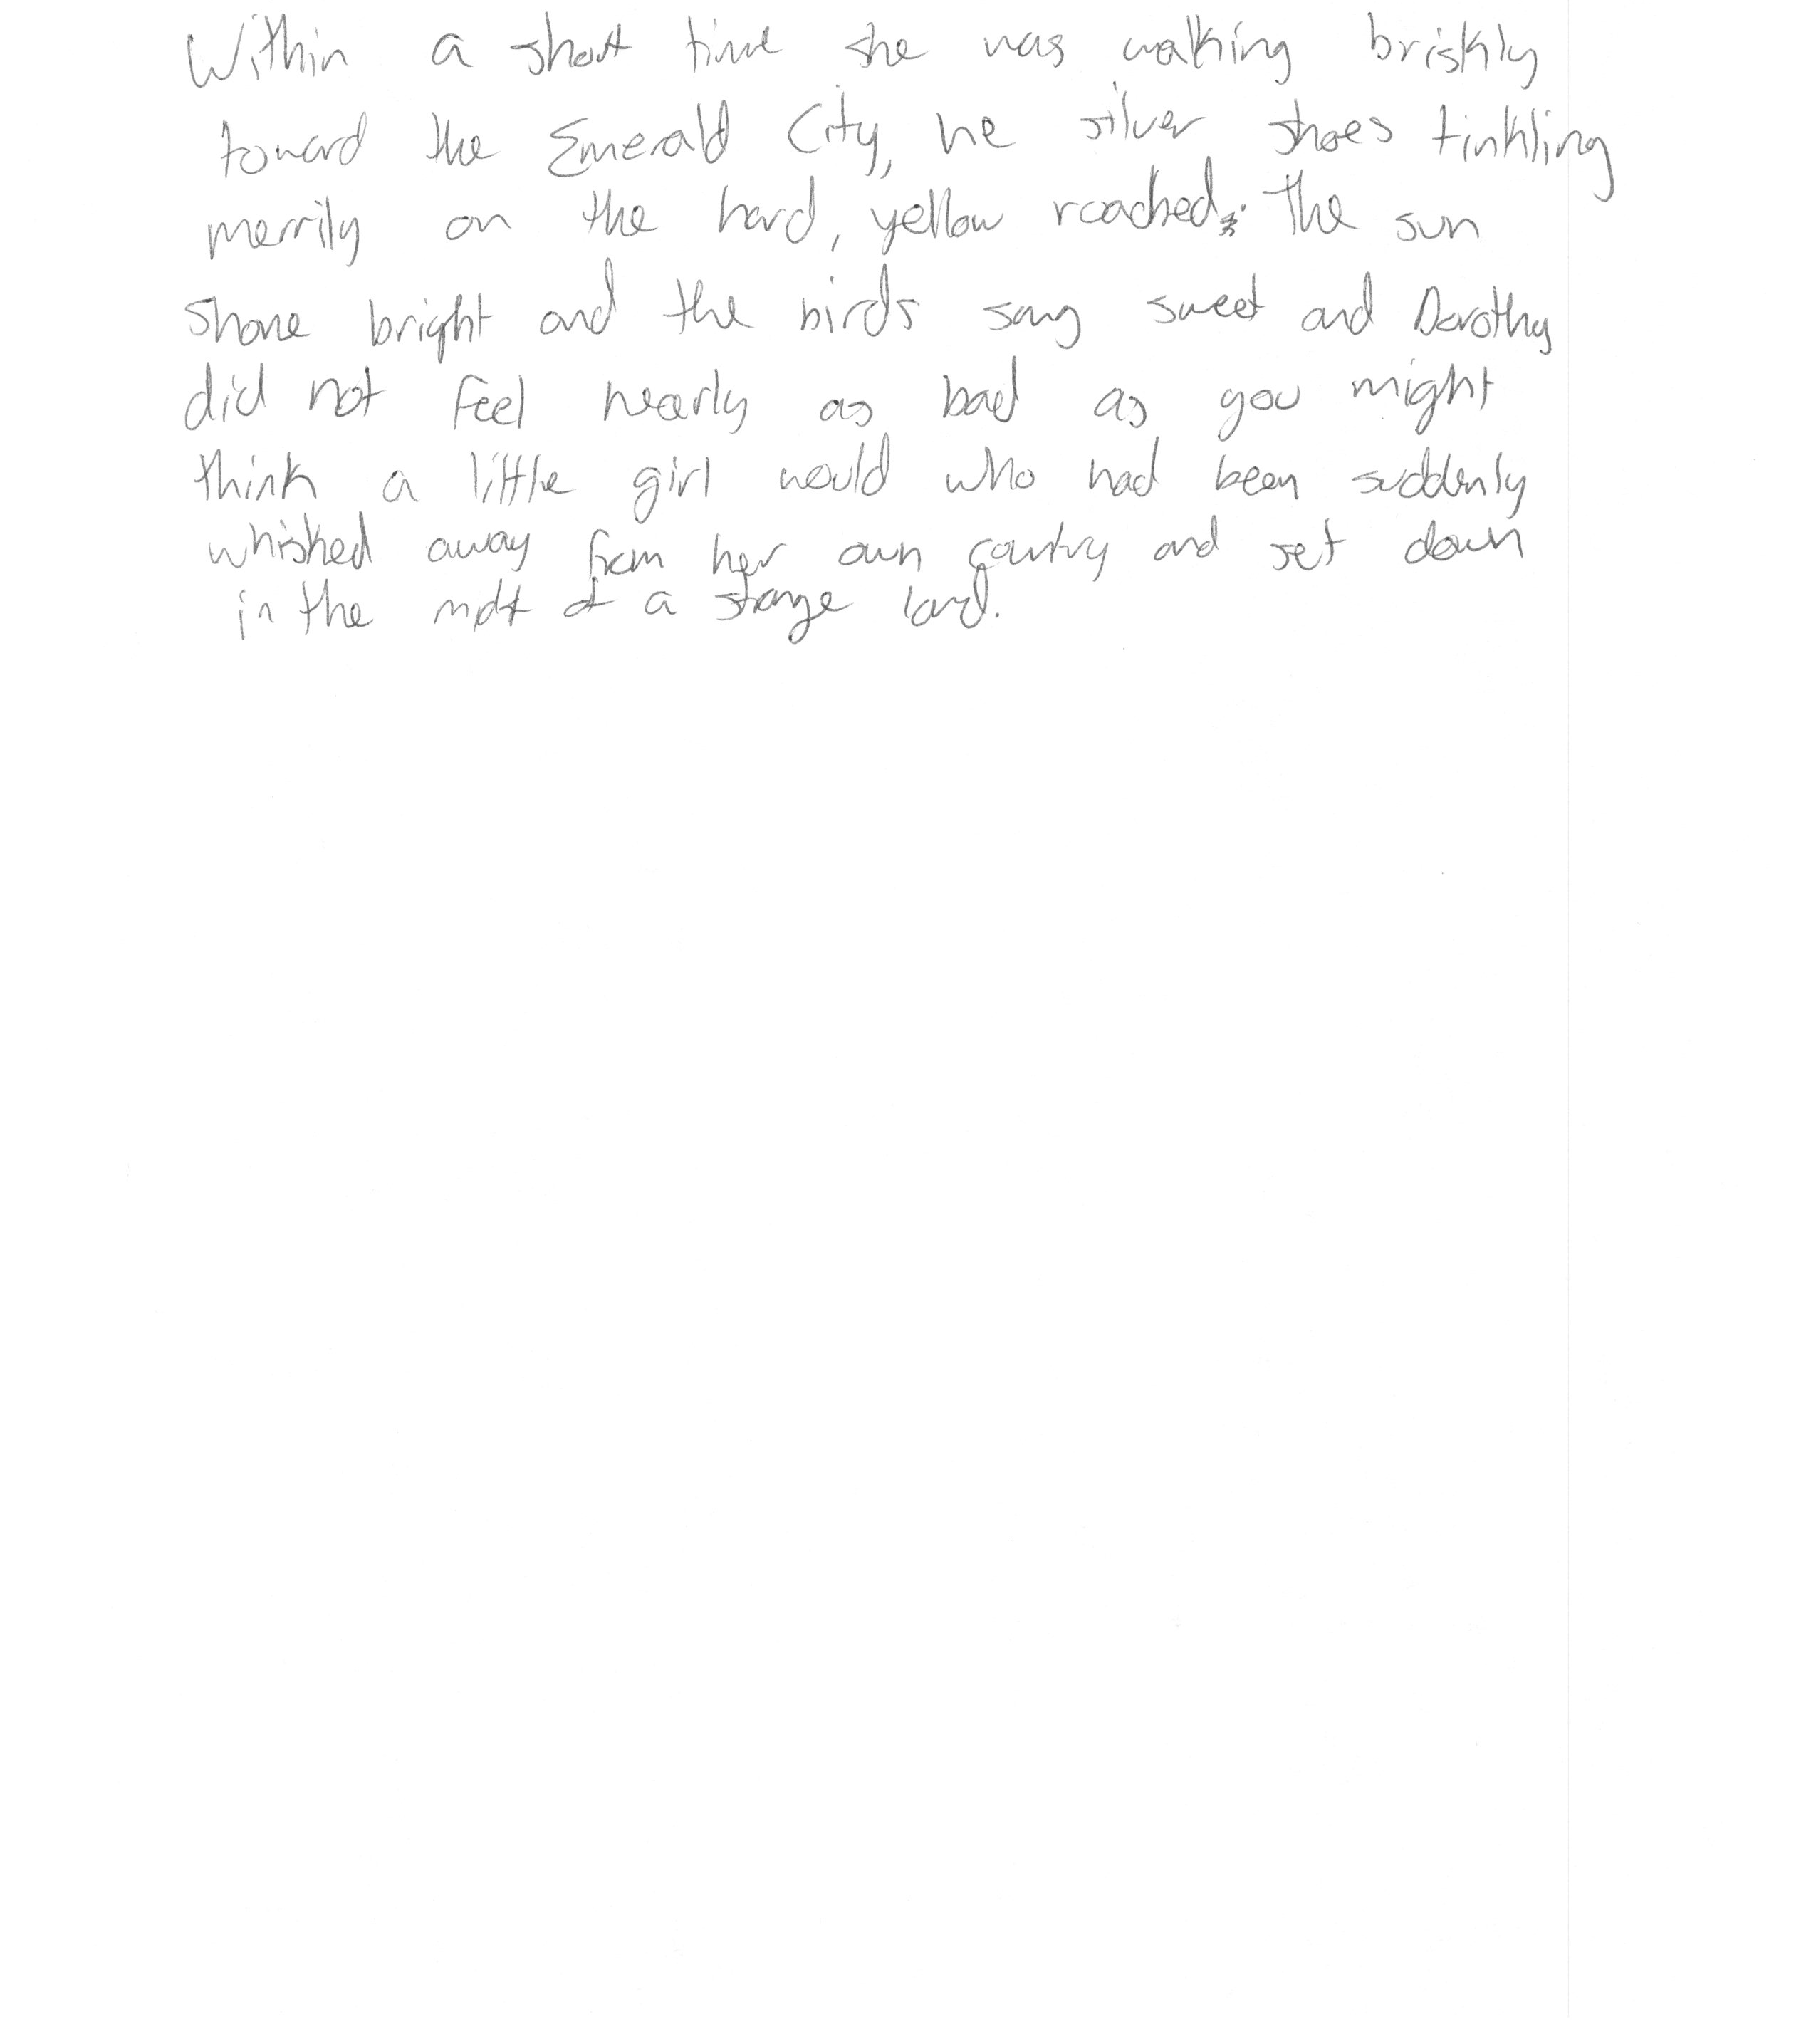 Within a short time she was walking briskly
toward the Emerald City, he silver shoes tinkling
merrily on the hard, yellow roadbed. The sun
shone bright and the birds sang sweet and Dorothy
did not feel nearly as bad as you might
think a little girl would who had been suddenly
whisked away from her own country and set down
in the midst of a strange land.